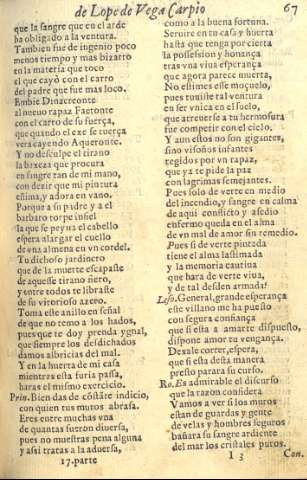 de Lope de Vega Carpio 67
que la sangre que en el arde
ha obligado a la ventura.
Tambien fue de ingenio poco
menos tiempo y mas bizarro
en la materia que toco
el que cayò con el carro
del padre que fue mas loco.
Embie
al nueuo rapaz Faetonte
con el carro de su fuerça,
que quando el exe se tuerça
verà cayendo Aqueronte.
Y no desculpe el tirano
la baxeza que procura
en sangre tan de mi mano,
con dezir que mi pintura
estima, y adora en vano.
Porque a su padre y a el
barbaro torpe infiel
la que se peyna el cabello
espera alargar el cuello
de vna almena en vn cordel.
Tu dichoso jardinero
que de la muerte escapaste
de aquesse tirano fiero,
y entre todos te libraste
de su vitorioso azero.
Toma este anillo en señal
de que no temo a los hados,
pues que te doy prenda ygual,
que siempre los desdichados
damos albricias del mal.
Y en la huerta de mi casa
mientras esta furia passa,
haras el mismo exercicio.
Prin. Bien das de cõstãte indicio,
con quien tus muros abrasa.
Eres entre muchas vna
de quantas fueron diuersa,
pues no muestras pena alguna
y assi tratas a la aduersa,
17. parte
como a la buena fortuna.
Seruire en tu casa y huerta
hasta que tenga por cierta
la possession y honança
tras vna viua esperança
que agora parece muerta,
No estimes esse moçuelo,
pues tuuiste tal ventura
en ser vnica en el suelo,
que atreuerse a tu hermosura
fue competir con el cielo.
Y aun estos no son gigantes,
sino visoños infantes
regidos por vn rapaz,
que ya te pide la paz
con lagrimas semejantes.
Pues solo de verte en medio
del incendio, y sangre en calma
de aqui conflicto y asedio
enfermo queda en el alma
de vn mal de amor sin remedio.
Pues si de verte pintada
tiene el alma lastimada
y la memoria cautiua
que hara de verte viua,
y de tal desden armada?
Leso. General, grande esperança
este villano me ha puesto
con segura confiança
que si esta a amarte dispuesto,
dispone amor tu vengança.
Dexale correr, espera,
que si esta desta manera
presto parara su curso.
Ro. Es admirable el discurso
que la razon considera
Vamos a ver si los muros
estan de guardas y gente
de velas y hombres seguros
bañara su sangre ardiente
del mar los cristales puros.
I 3 Con.